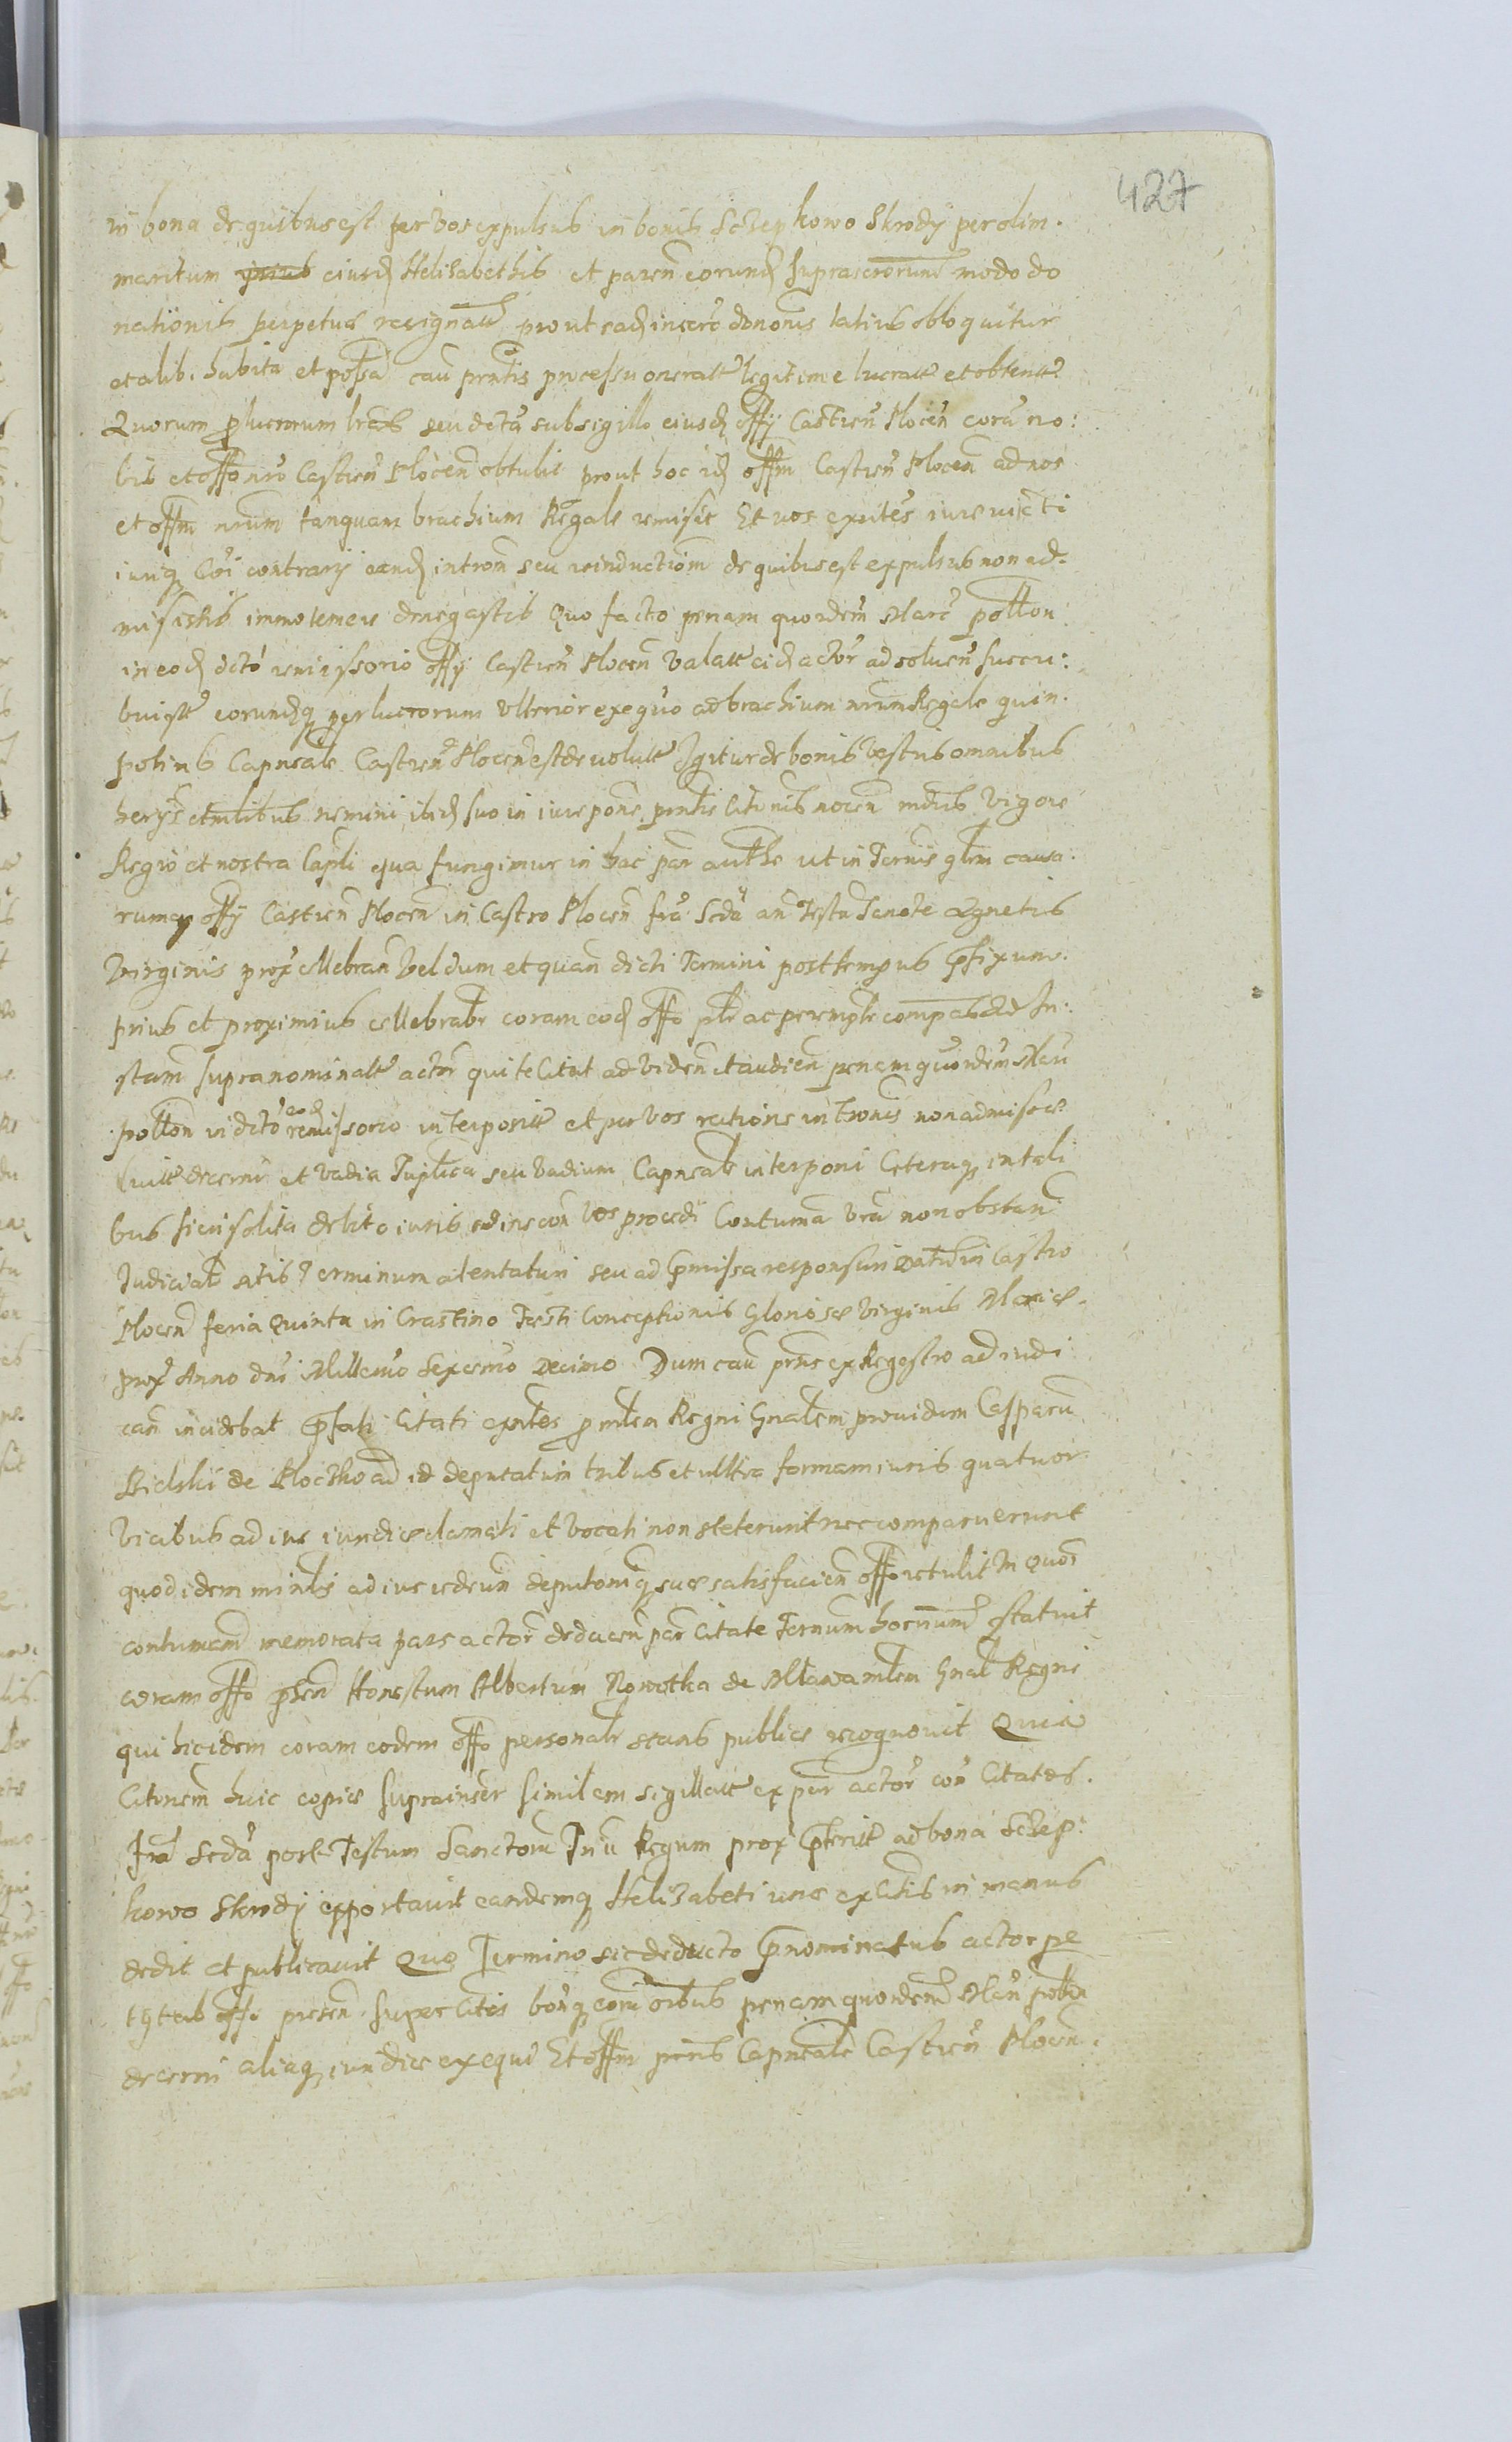 427
in bona de quibus est per vos expulsus in bonis Sczepkowo Skrody per olim.
maritum eiusd Helisabethis et paren eorund modo do
nationis perpetuæ resignatt prout ead inscrc dononis latius obloquitur
et alib. habita et possa cau pntis processu oneratt legitime lucratt et obtentt
Quorum plucrorum seu dctă sub sigillo eiusd offÿ Castren Plocen coră no:
bis et offo nro Castren Plocen obtulit prout hoc id offm Castren Plocen ad nos
et offm nrum tanquam brachium Regale remisit Et vos exntes iure victi
iurisq contrarÿ eand introm seu reinductiom de quibus est expulsus non ad-
misistis immo temere denegastis Quo facto penam quordem Marc pollon
in eod dcto remissorio offÿ Castren Plocen actor ad soluen succu:
buistt eorundq perlucrorum vlterior exequo ad brachium nrum Regale quin.
potius Capneale Castren Plocen est deuolutt Igitur de bonis vestris omnibus
nemini ibid suo in iure pone pntis Citnis nocen mdus vigore
Regio et nostra Capli qua fungimur in hac par authe ut in Termis glm causa.
rumq offÿ Castren Plocen in Castro Plocen fra Scdă an Festu Sancte Agnetis
Virginis prox cellebran vel dum et quan dicti Termini post tempus pfixum.
prius et proximius cellebrabr coram eod offo plr ac peremptr compatis Ad In:
stam supranominatt actor qui te Citat ad viden et audien penam quordem Mar
pollon in dcto eod remissorio interpositt et per vos ratione intronis non admissæ
luitt decerni et vadia Triplica seu vadium Capneale interponi Ceteraq in tali
bus fieri solita debito iuris ordine con vos procedi Contuma vra non obstan
Judicialr Terminum attentaturi seu ad pmissa responsuri Datum in Castro
Plocen feria Quinta in Crastino Festi Conceptionis Gloriosæ Virginis Mariæ.
prox Anno dni Millemo Sexcmo Decimo Dum cau pns ex Regestro ad iudi
can incidebat pfati Citati exntes p mlem Regni Gnalem prouidum Casparu
Bielski de Ploczko ad id deputatum tribus et ultra formam iuris quatuor
vicibus ad ius iurdice clamati et vocati non steterunt nec comparuerunt
quod idem minlis ad ius redeun deputoniq suæ satisfacien offo retulit In Quor
contumam memorata pars actor deducen par Citatæ Ternum hornum statuit
coram offo psen Honestum Albertum Nowotka de Mlawa mlem Gnal Regni
qui hic idem coram eodem offo personalr stans publice recognouit Quia
Citonem huic copiæ suprainser similem sigillatt ex par actor con Citatos.
fra Scdă post Festum Sanctoru Triu Regum prox pteritt ad bona Sczep:
kowo Skrody apportauit eandemq Helizabeti une ex Citis in manus
dedit et publicauit Quo Termino sic deducto pnominatus actor pe
tÿt ab offo presen super Citis bonq eoru oibus penam quordem Mar pollon
decerni aliaq iurdice exequi Et offm pens Capneale Castren Plocen.